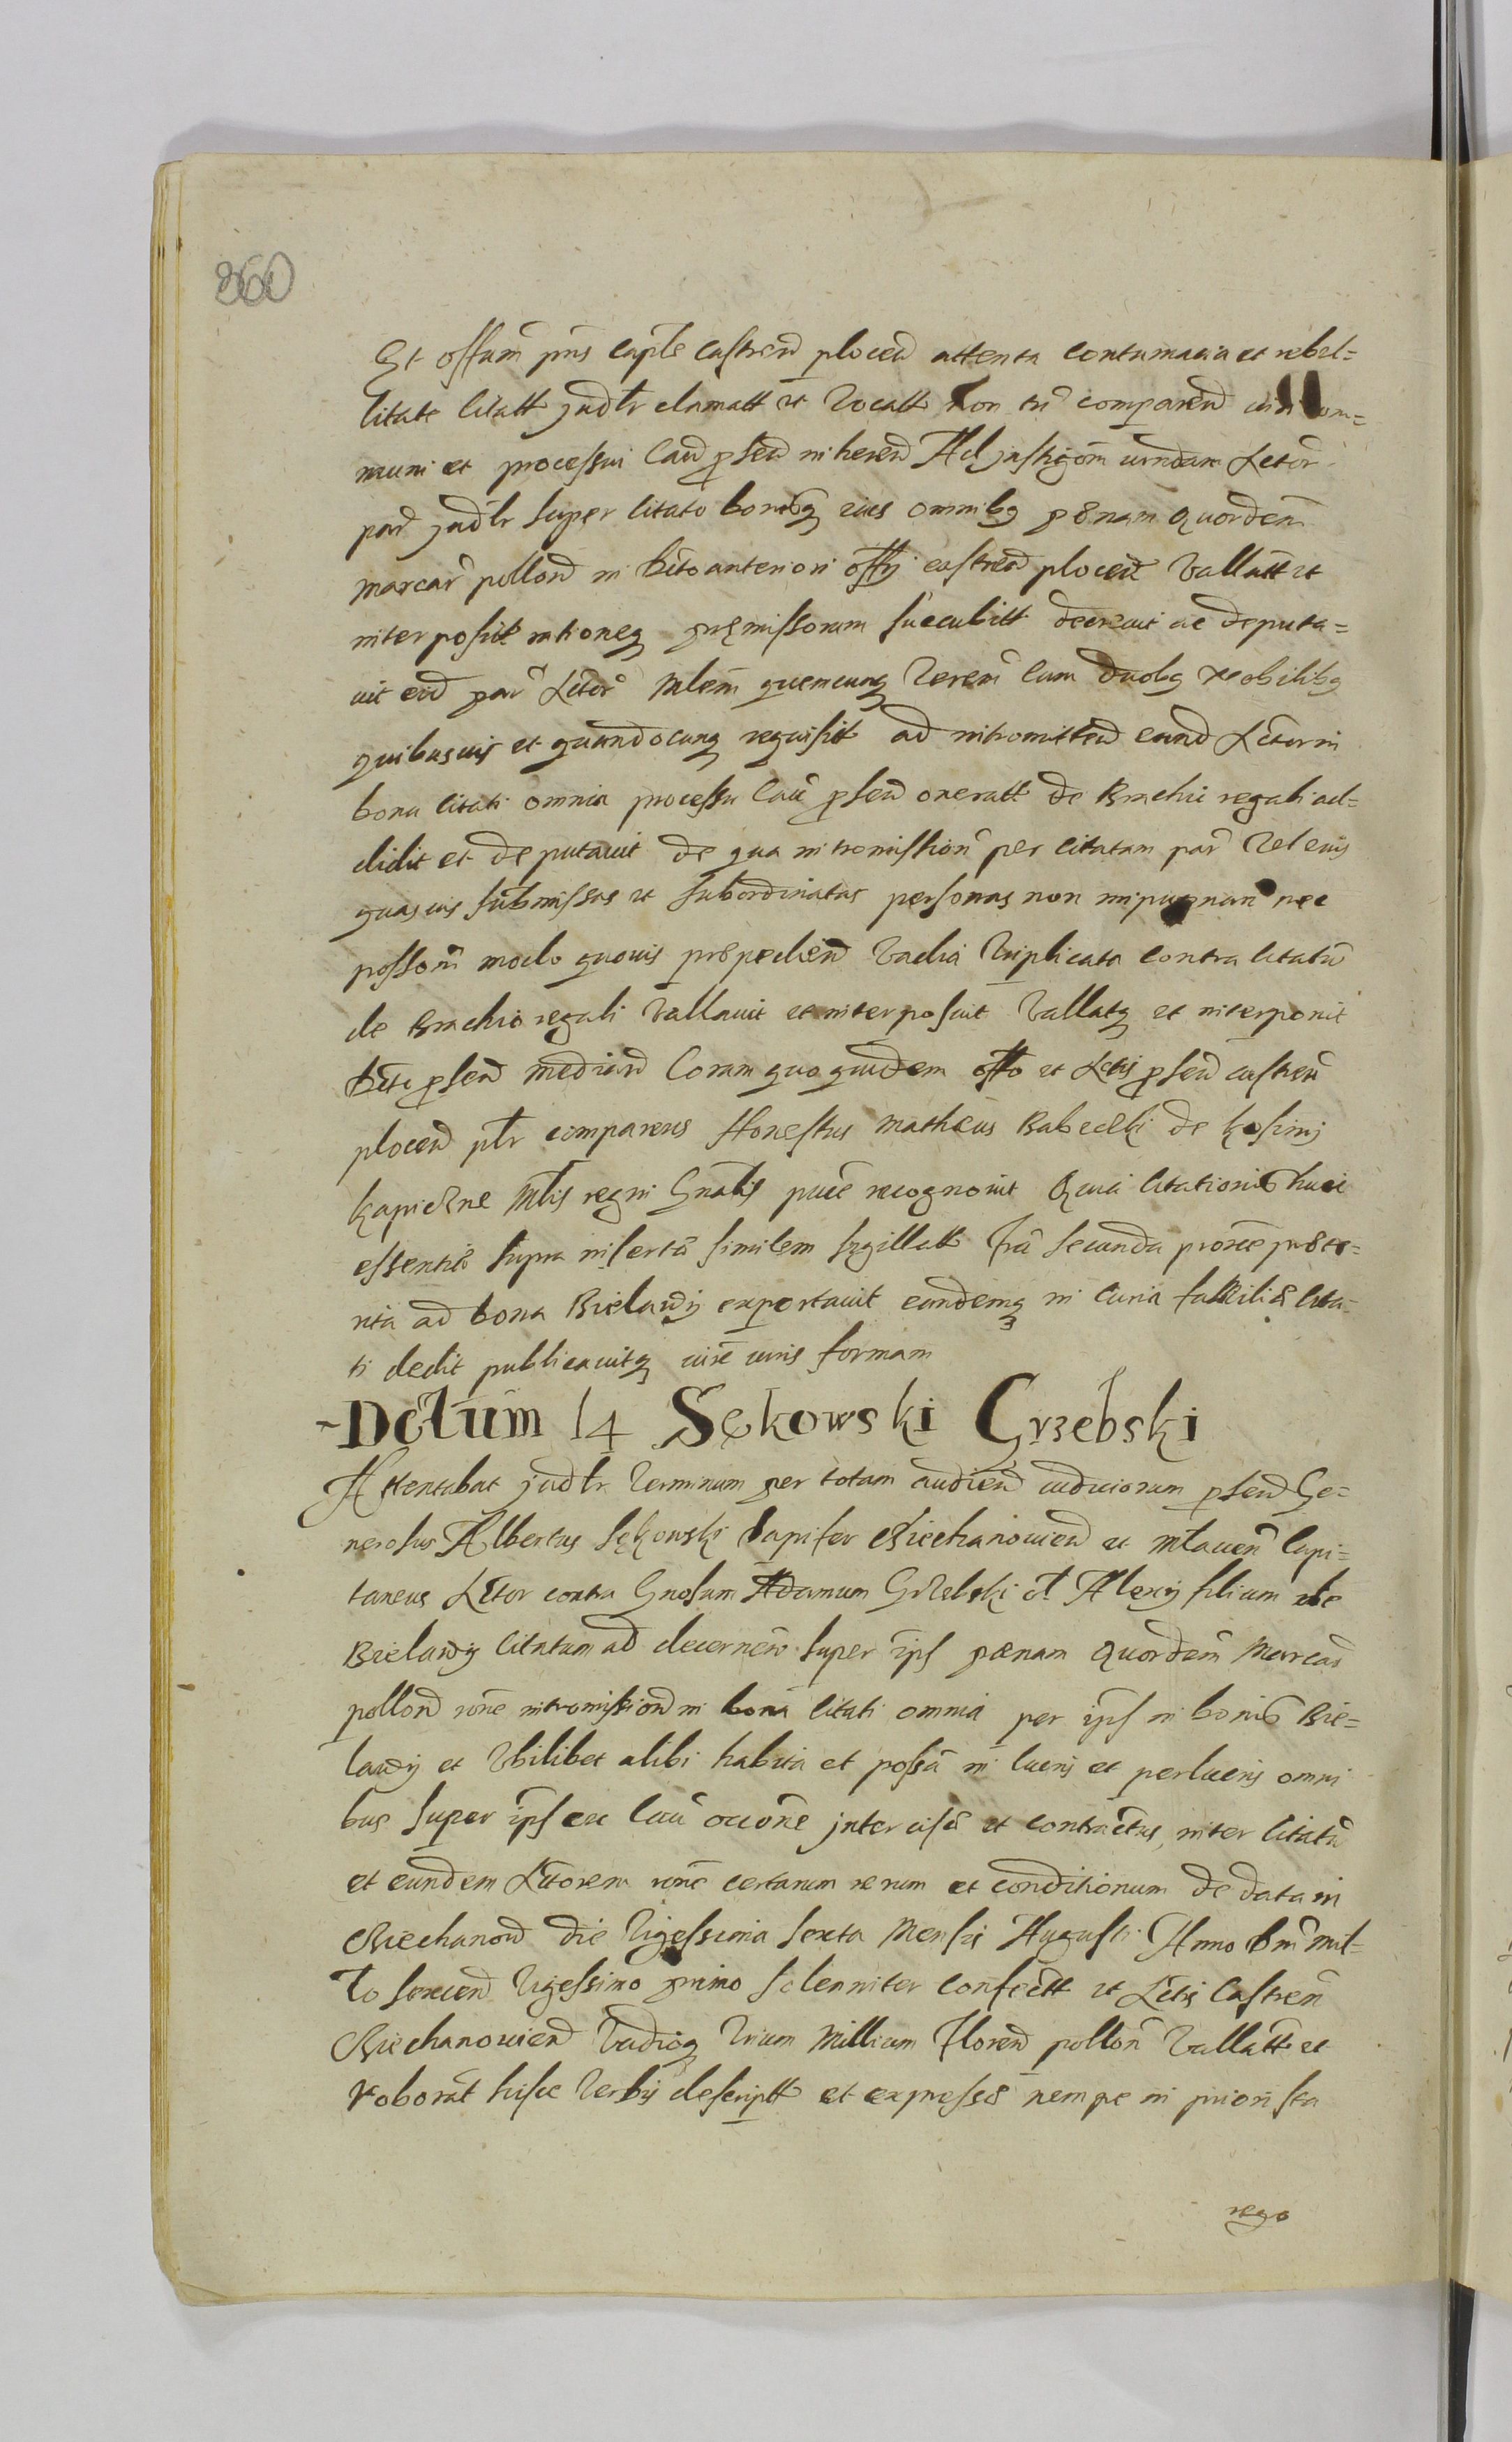 860
Et offum pns caple castren plocen attenta contumacia et rebel=
litate citatt judlr clamatt et vocatt non tn comparen
muni et processui cau psen inheren Ad instigom eiusdem Lctor
par judlr super citato bonisq eius omnibq pœnam Quordem
marcar pollon in Dcto anteriori offij castren plocen vallatt et
interposit rationeq præmissorum succubitt decrevit ac deputa=
vit eid par Lctor Mlem quemcunq Regni cum duobq Nobilibq
quibusvis et quandocunq requisit ad intromitten eund Lctor in
bona citati omnia processu cau psen oneratt de Brachio regali ad=
didit et deputavit de qua intromission per citatam par vel eius
quasvis submissas et subordinatas personas non impugnan nec
possom modo quovis præpedien vadia triplicata contra citatu
de Brachio regali vallavit et interposuit vallatq et interponit
Dcti psen median Coram quo quidem offo et Actis psen castren
plocen pltr comparens Honestus Matheus Babecki de Kosiny
Kapiczne Mlis regni Gnalis puce recognovit Quia citationis huic
essentiæ supra insertæ similem sygillatt fra secunda proxe præte=
rita ad bona Bielawy exportavit eandemq in curia familiæ cita=
ti dedit publicavitq iuxe iuris formam
Dctum 14 Sękowski Grzebski
Attentabat judlr Terminum per totam audien iudiciorum psen Ge=
nerosus Albertus Sękowski Dapifer Ciechanovien et Mlaven Capi=
taneus Actor contra Gnosum Adamum Grzebski ol Alexij filium de
Bielawy citatum ad decernen super ips pœnam Quordem Marcar
pollon rone intromission in bona citati omnia per ips in bonis Bie=
lawy et ubilibet alibi habita et possa in lucris et perlucris omni
bus super ips ex cau occone intercisæ et contractus, inter citatu
et eundem Actorem rone certarum rerum et conditionum de data in
Ciechanow die Vigessima sexta Mensis Augusti Anno Dni mil=
lo sexcen Vigessimo primo solenniter confectt et Actis Castren
Ciechanovien vadioq trium Millium Floren pollon vallatt et
roborat hisce verbis descriptt et expressæ nempe in priori sta
rego